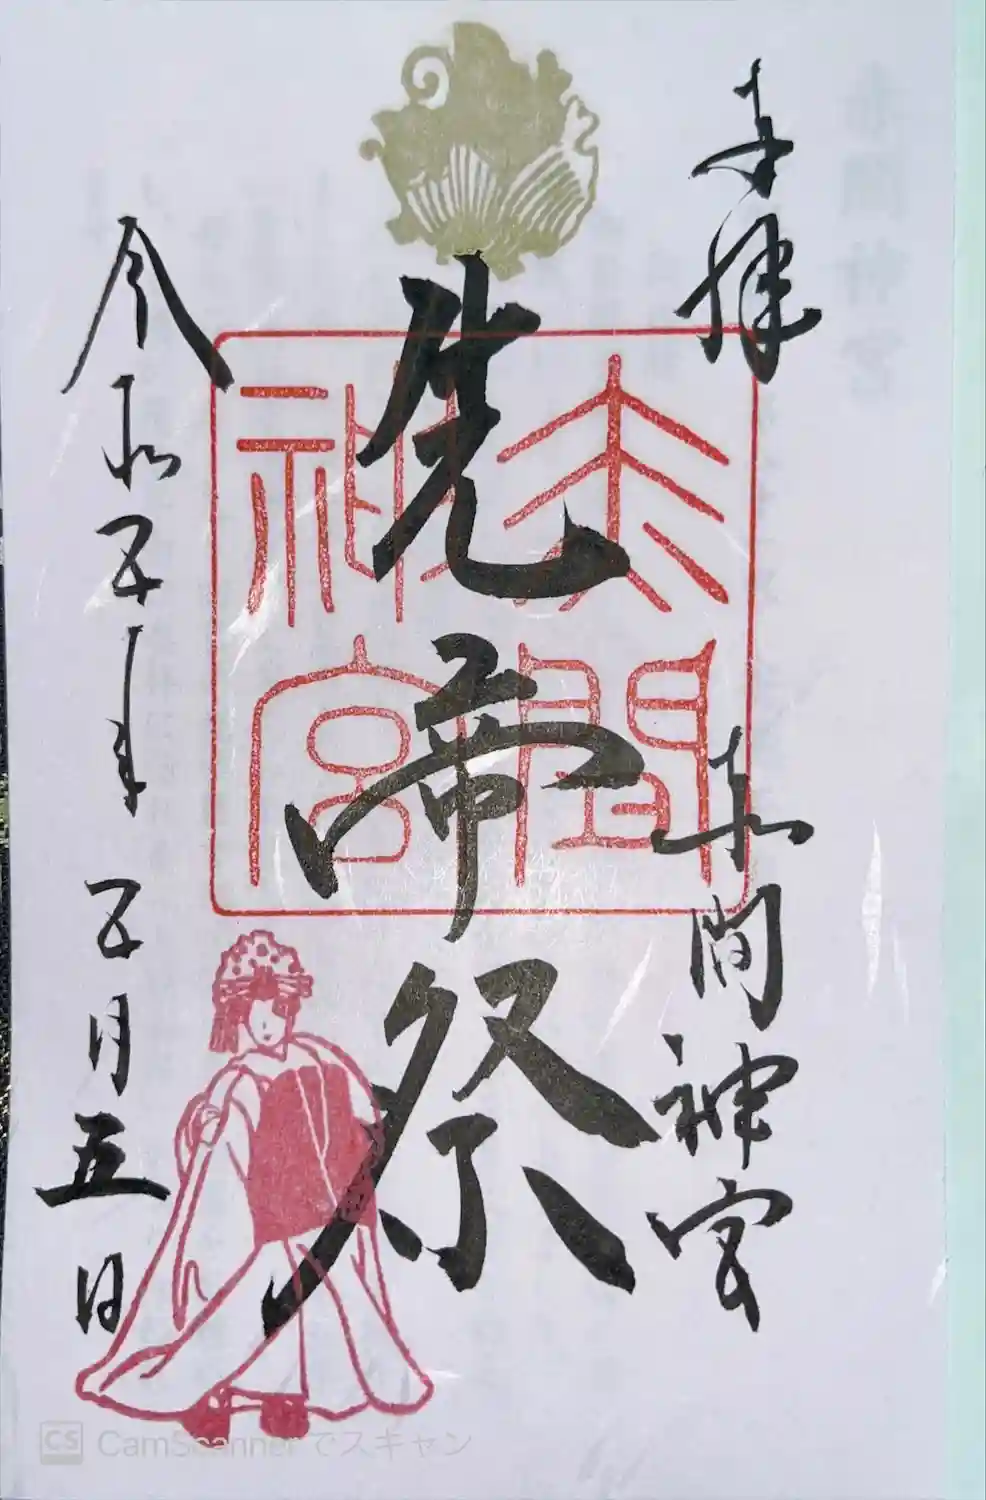 奉拝
赤間神宮
先帝祭
赤間
神宮
令和五年五月五日
CS CamScannerでスキャン